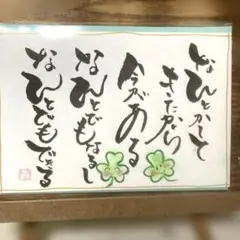 なんとかして
きたから
今がある
なんとでもなるし
なんとでもできる